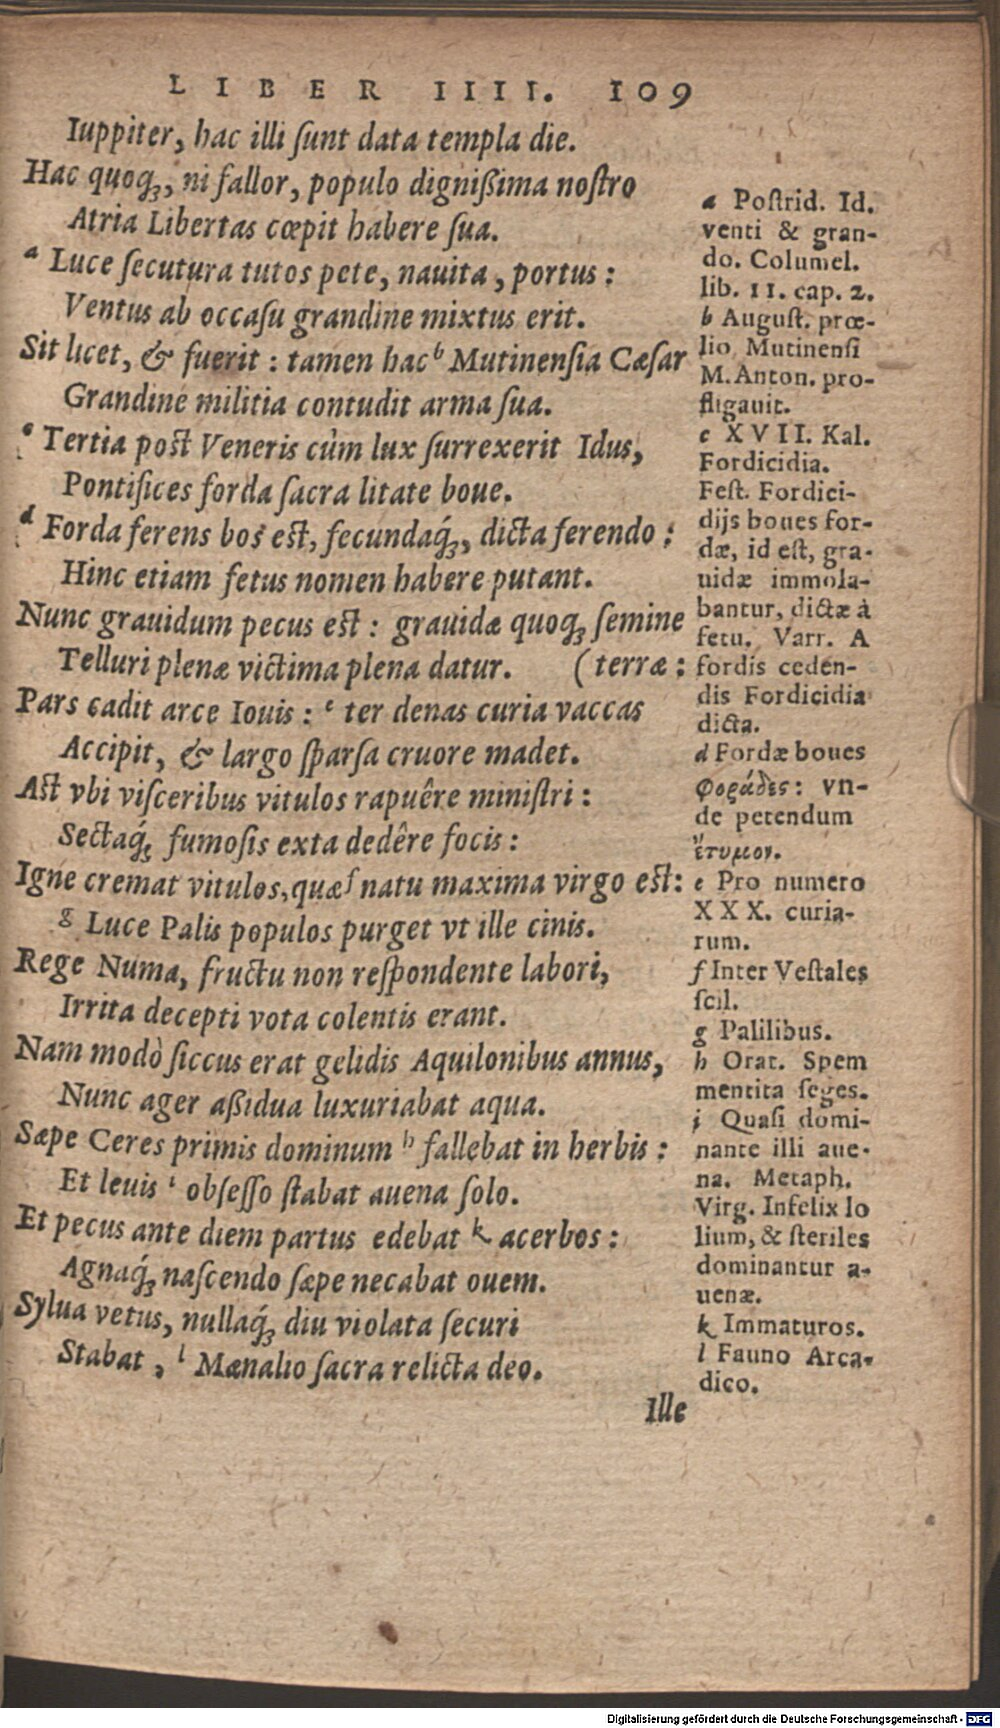 LIBER IIII. 109
Iuppiter, hac illi ſunt data templa die.
Hac quoqꝫ, ni fallor, populo dignißima noſtro
Atria Libertas cœpit habere ſua.
a Luce ſecutura tutos pete, nauita, portus:
Ventus ab occaſu grandine mixtus erit.
Sit licet, & fuerit: tamen hac b Mutinenſia Cæſar
Grandine militia contudit arma ſua.
c Tertia poſt Veneris cùm lux ſurrexerit Idus,
Pontifices forda ſacra litate boue.
d Forda ferens bos eſt, fecundaq́ꝫ, dicta ferendo:
Hinc etiam fetus nomen habere putant.
Nunc grauidum pecus eſt: grauidæ quoqꝫ ſemine
Telluri plenæ victima plena datur. (terræ:
Pars cadit arce Iouis: e ter denas curia vaccas
Accipit, & largo ſparſa cruore madet.
Aſt vbi viſceribus vitulos rapuêre miniſtri:
Sectaq́ꝫ fumoſis exta dedêre focis:
Igne cremat vitulos, quæ f natu maxima virgo eſt:
g Luce Palis populos purget vt ille cinis.
Rege Numa, fructu non reſpondente labori,
Irrita decepti vota colentis erant.
Nam modò ſiccus erat gelidis Aquilonibus annus,
Nunc ager aßidua luxuriabat aqua.
Sæpe Ceres primis dominum h fallebat in herbis:
Et leuis i obſeſſo ſtabat auena ſolo.
Et pecus ante diem partus edebat k acerbos:
Agnaq́ꝫ naſcendo ſæpe necabat ouem.
Sylua vetus, nullaq́ꝫ diu violata ſecuri
Stabat, l Mænalio ſacra relicta deo.
Ille
a Poſtrid. Id.
venti & gran-
do. Columel.
lib. 11. cap. 2.
b Auguſt. prœ-
lio Mutinenſi
M. Anton. pro-
fligauit.
c XVII. Kal.
Fordicidia.
Feſt. Fordici-
dijs boues for-
dæ, id eſt, gra-
uidæ immola-
bantur, dictæ à
fetu. Varr. A
fordis ceden-
dis Fordicidia
dicta.
d Fordæ boues
φοράδες: vn-
de petendum
ἔτυμον.
e Pro numero
XXX. curia-
rum.
f Inter Veſtales
ſcil.
g Palilibus.
h Orat. Spem
mentita ſeges.
i Quaſi domi-
nante illi aue-
na. Metaph.
Virg. Infelix lo
lium, & ſteriles
dominantur a-
uenæ.
k Immaturos.
l Fauno Arca-
dico.
Digitalisierung gefördert durch die Deutsche Forschungsgemeinschaft - DFG